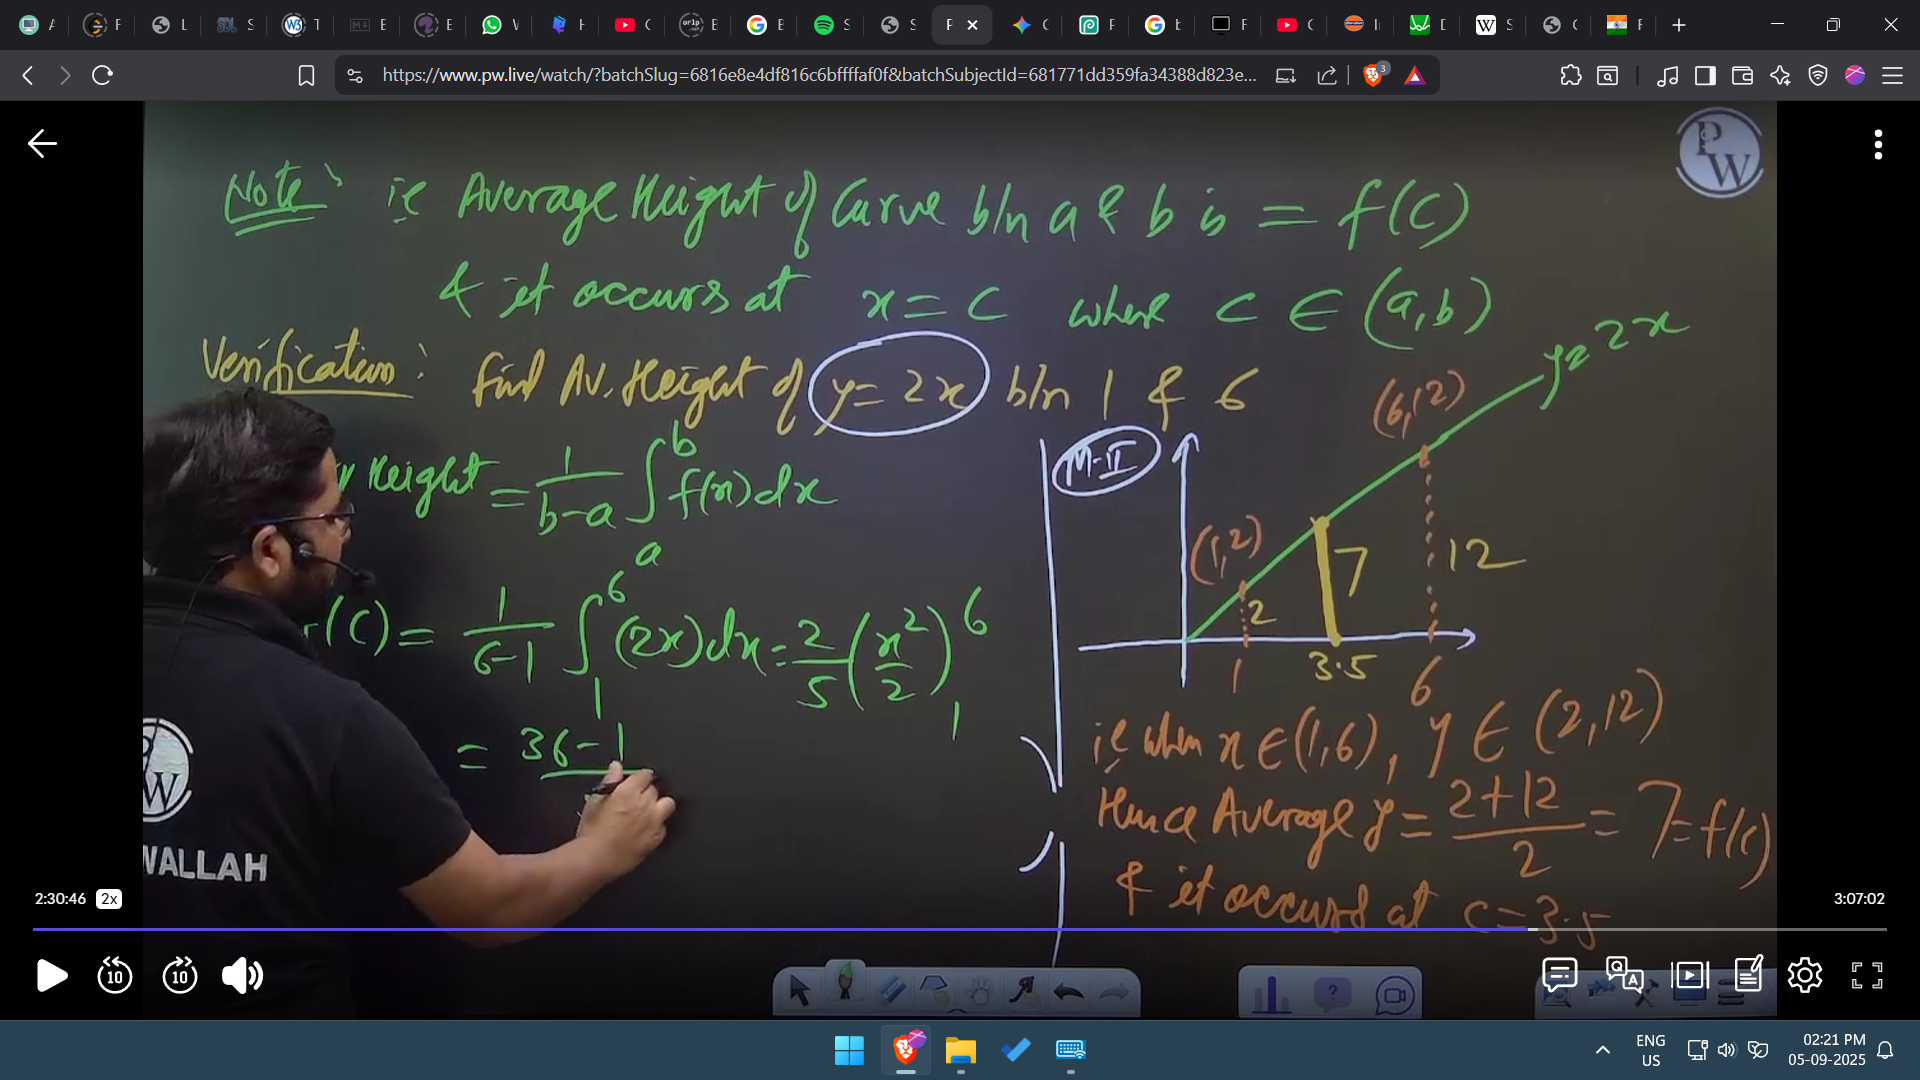 A
F
L
S
T
E
E
W
F
C
E
E
S
S
F
C
F
b
F
C
I
D
S
C
F
https://www.pw.live/watch/?batchSlug=6816e8e4df816c6bffffaf0f&batchSubjectId=681771dd359fa34388d823e...
3
PW
Note: ie Average Height of Curve b/n a & b is = f(c)
& it occurs at x = c where c ∈ (a,b)
Verification: find Av. Height of y = 2x b/n 1 & 6
y = 2x
Height = 1/(b-a) ∫_a^b f(x) dx
(c) = 1/(6-1) ∫_1^6 (2x) dx = 2/5 (x²/2)_1^6
= 36-1
M-II
(6,12)
(1,2)
2
7
12
1
3.5
6
ie when x ∈ (1,6), y ∈ (2,12)
Hence Average y = (2+12)/2 = 7 = f(c)
& it occurs at c = 3.5
WALLAH
2:30:46
2x
3:07:02
10
10
ENG
US
02:21 PM
05-09-2025